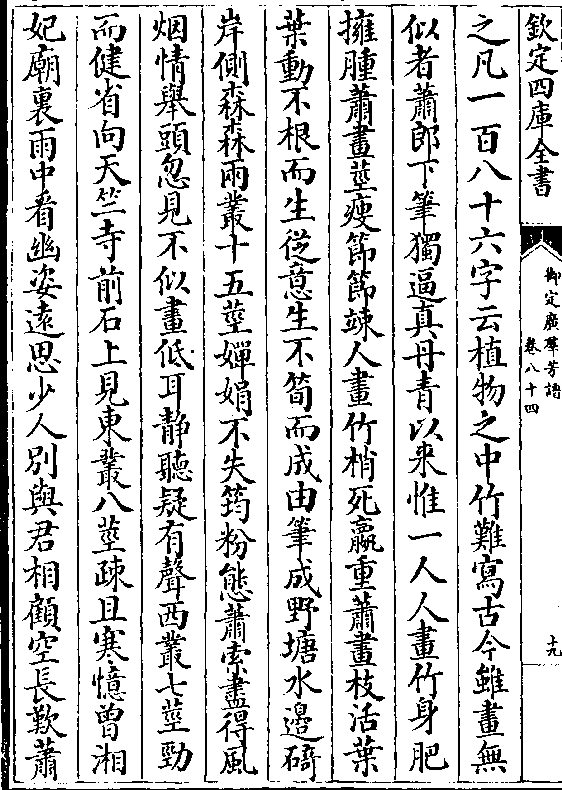 欽定四庫全書
御定廣羣芳譜
卷八十四
十九
之凡一百八十六字云植物之中竹難寫古今雖畫無
似者蕭郎下筆獨逼真丹青以來惟一人人畫竹身肥
擁腫蕭畫莖瘦節節竦人畫竹梢死羸重蕭畫枝活葉
葉動不根而生從意生不筍而成由筆成野塘水邊碕
岸側森森兩叢十五莖嬋娟不失筠粉態蕭索盡得風
烟情舉頭忽見不似畫低耳静聽疑有聲西叢七莖勁
而健省向天竺寺前石上見東叢八莖疎且寒憶曾湘
妃廟裏雨中看幽姿遠思少人别與君相顧空長歎蕭